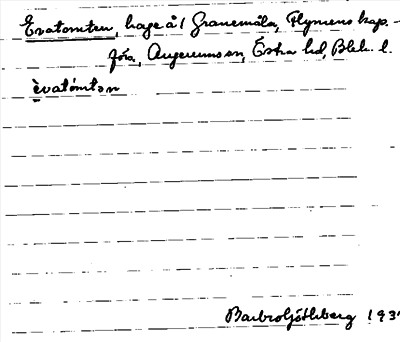 Evatomten, hage å 1 Granemåla, Flymens kap.-
förs., Augerums sn, Östra hd, Blek. l.
èvatómtən
Barbro Göthberg 193